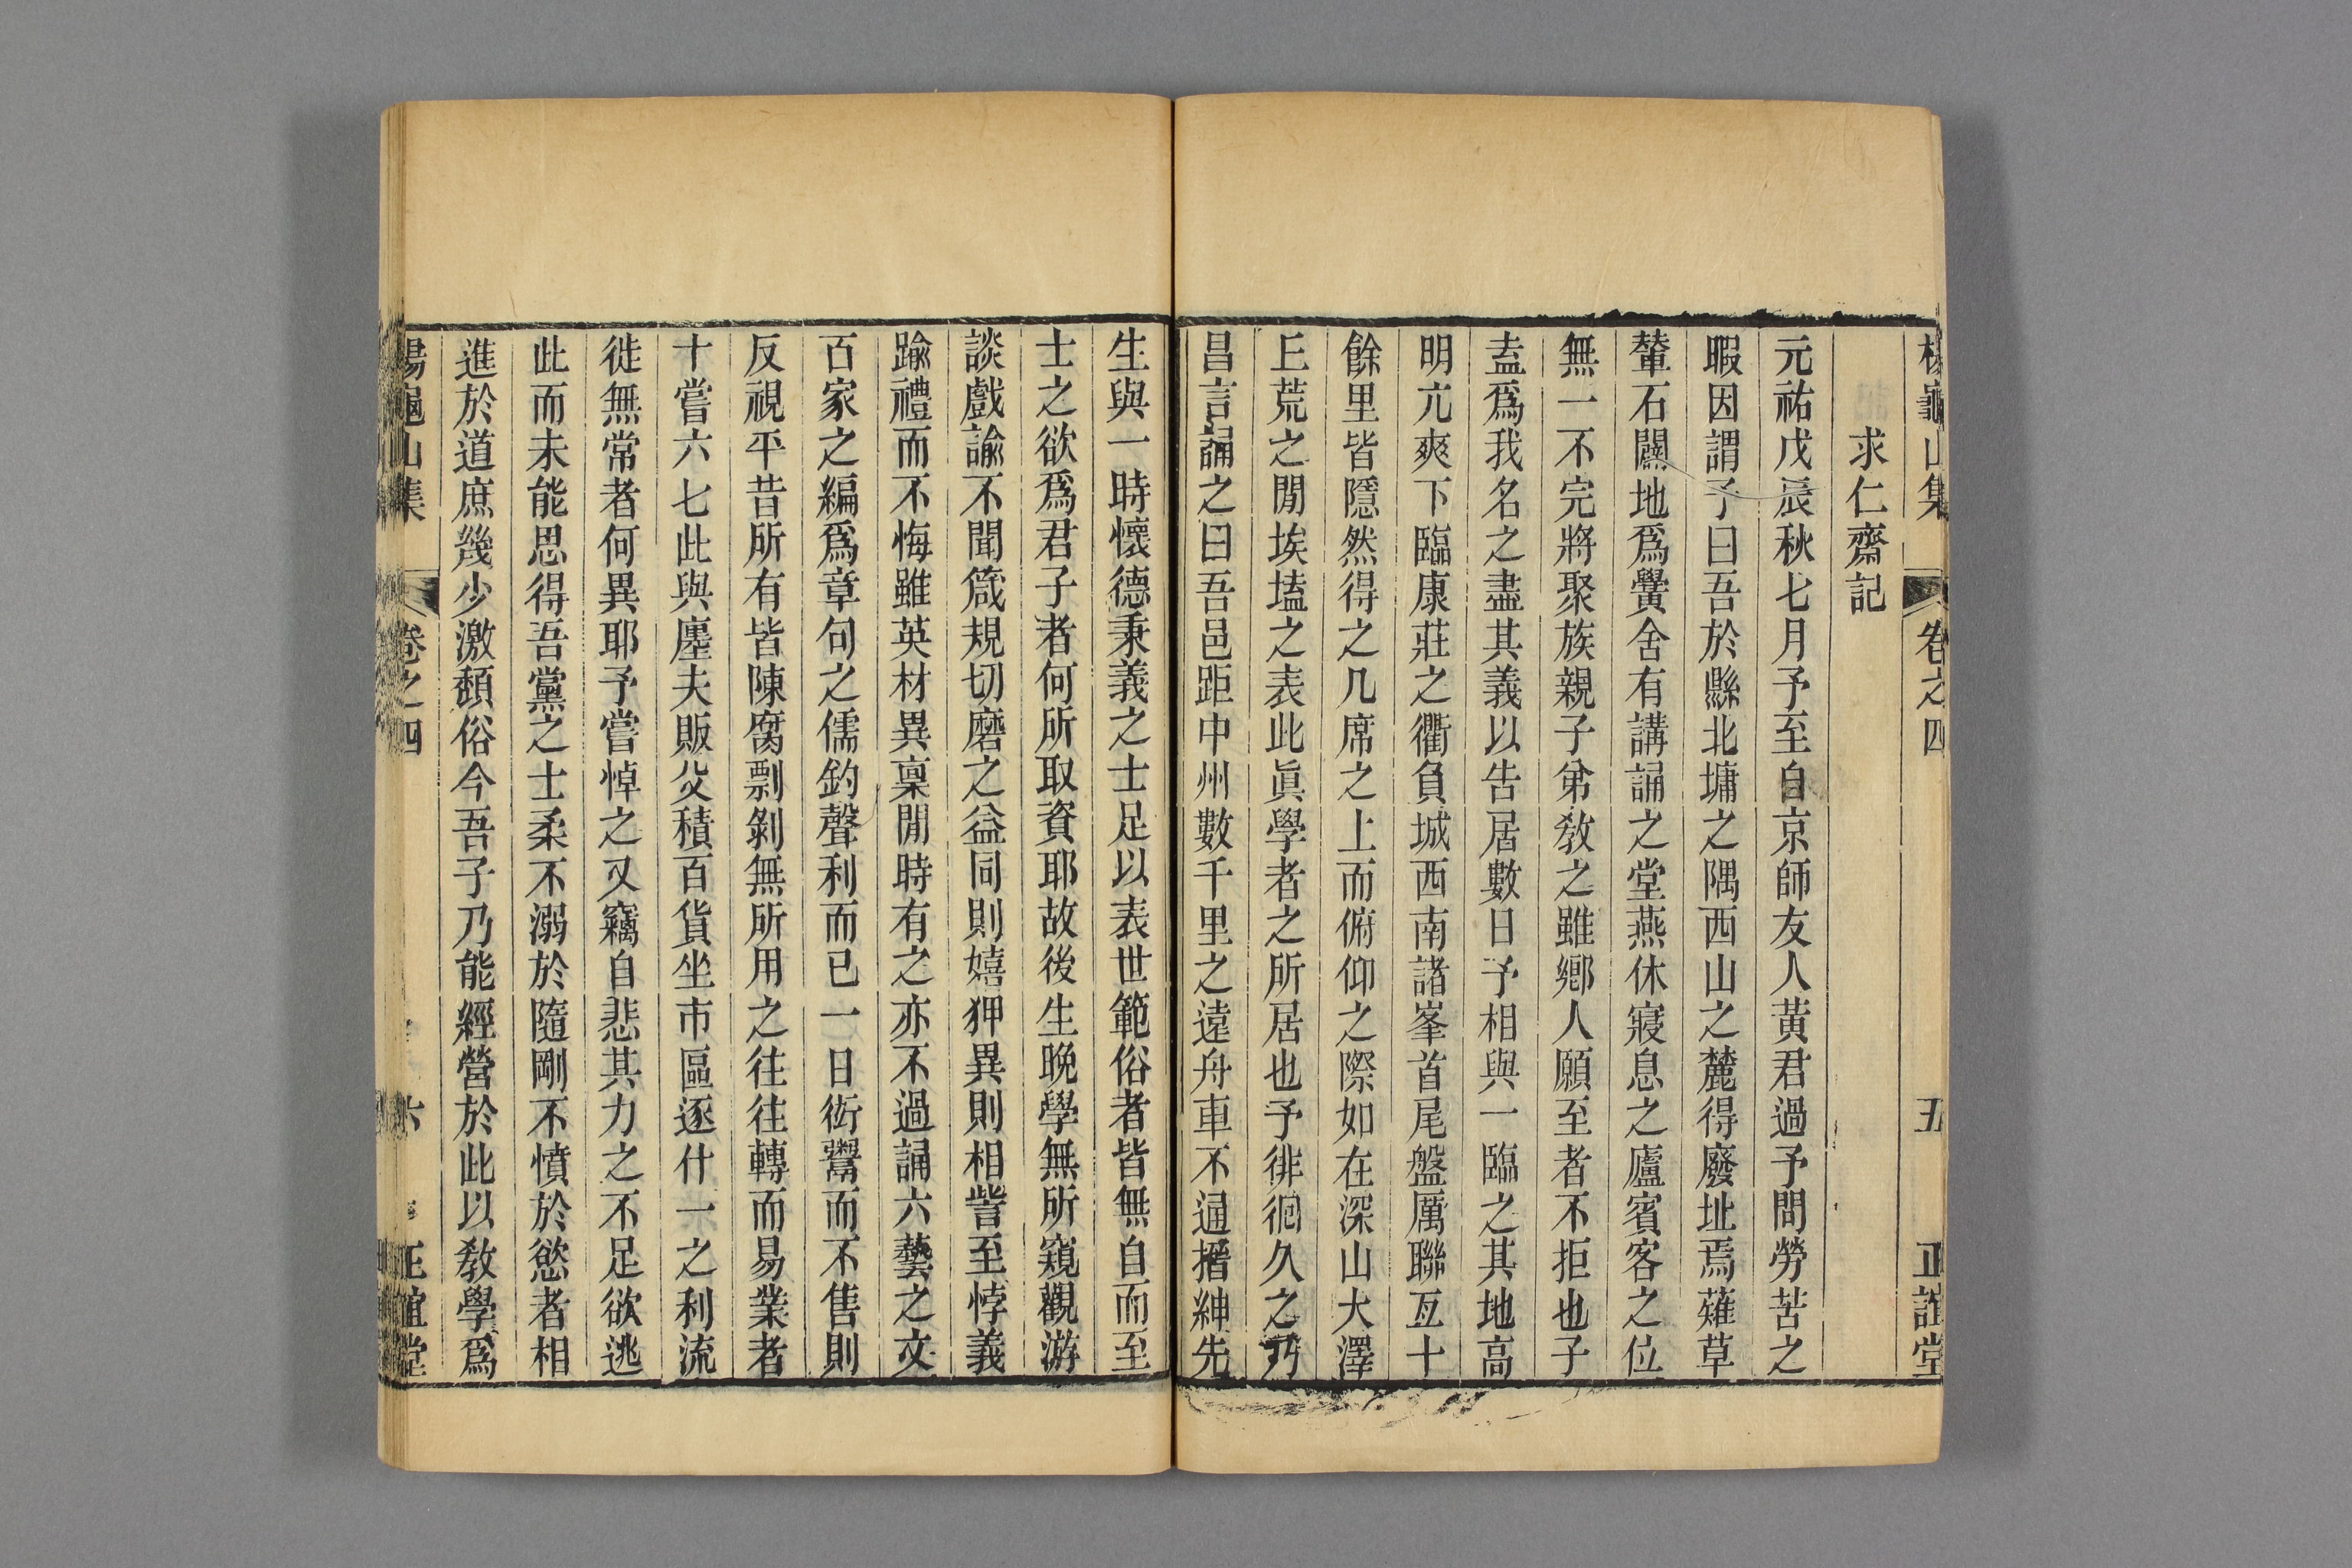 楊龜山集 卷之四 五 正誼堂
求仁齋記
元祐戊辰秋七月予至自京師友人黃君過予問勞苦之
暇因謂予曰吾於縣北墉之隅西山之麓得廢址焉薙草
輦石闢地爲黌舍有講誦之堂燕休寢息之廬賓客之位
無一不完將聚族親子弟敎之雖鄉人願至者不拒也子
盍爲我名之盡其義以告居數日予相與一臨之其地高
明亢爽下臨康莊之衢負城西南諸峯首尾盤厲聯亙十
餘里皆隱然得之几席之上而俯仰之際如在深山大澤
丘荒之閒埃壒之表此眞學者之所居也予徘徊久之乃
昌言誦之曰吾邑距中州數千里之遠舟車不通搢紳先
生與一時懷德秉義之士足以表世範俗者皆無自而至
士之欲爲君子者何所取資耶故後生晚學無所窺觀游
談戲諭不聞箴規切磨之益同則嬉狎異則相訾至悖義
踰禮而不悔雖英材異稟閒時有之亦不過誦六藝之文
百家之編爲章句之儒釣聲利而已一日衒鬻而不售則
反視平昔所有皆陳腐剽剝無所用之往往轉而易業者
十嘗六七此與廛夫販父積百貨坐市區逐什一之利流
徙無常者何異耶予嘗悼之又竊自悲其力之不足欲逃
此而未能思得吾黨之士柔不溺於隨剛不憤於慾者相
進於道庶幾少激頹俗今吾子乃能經營於此以敎學爲
楊龜山集 卷之四 六 正誼堂